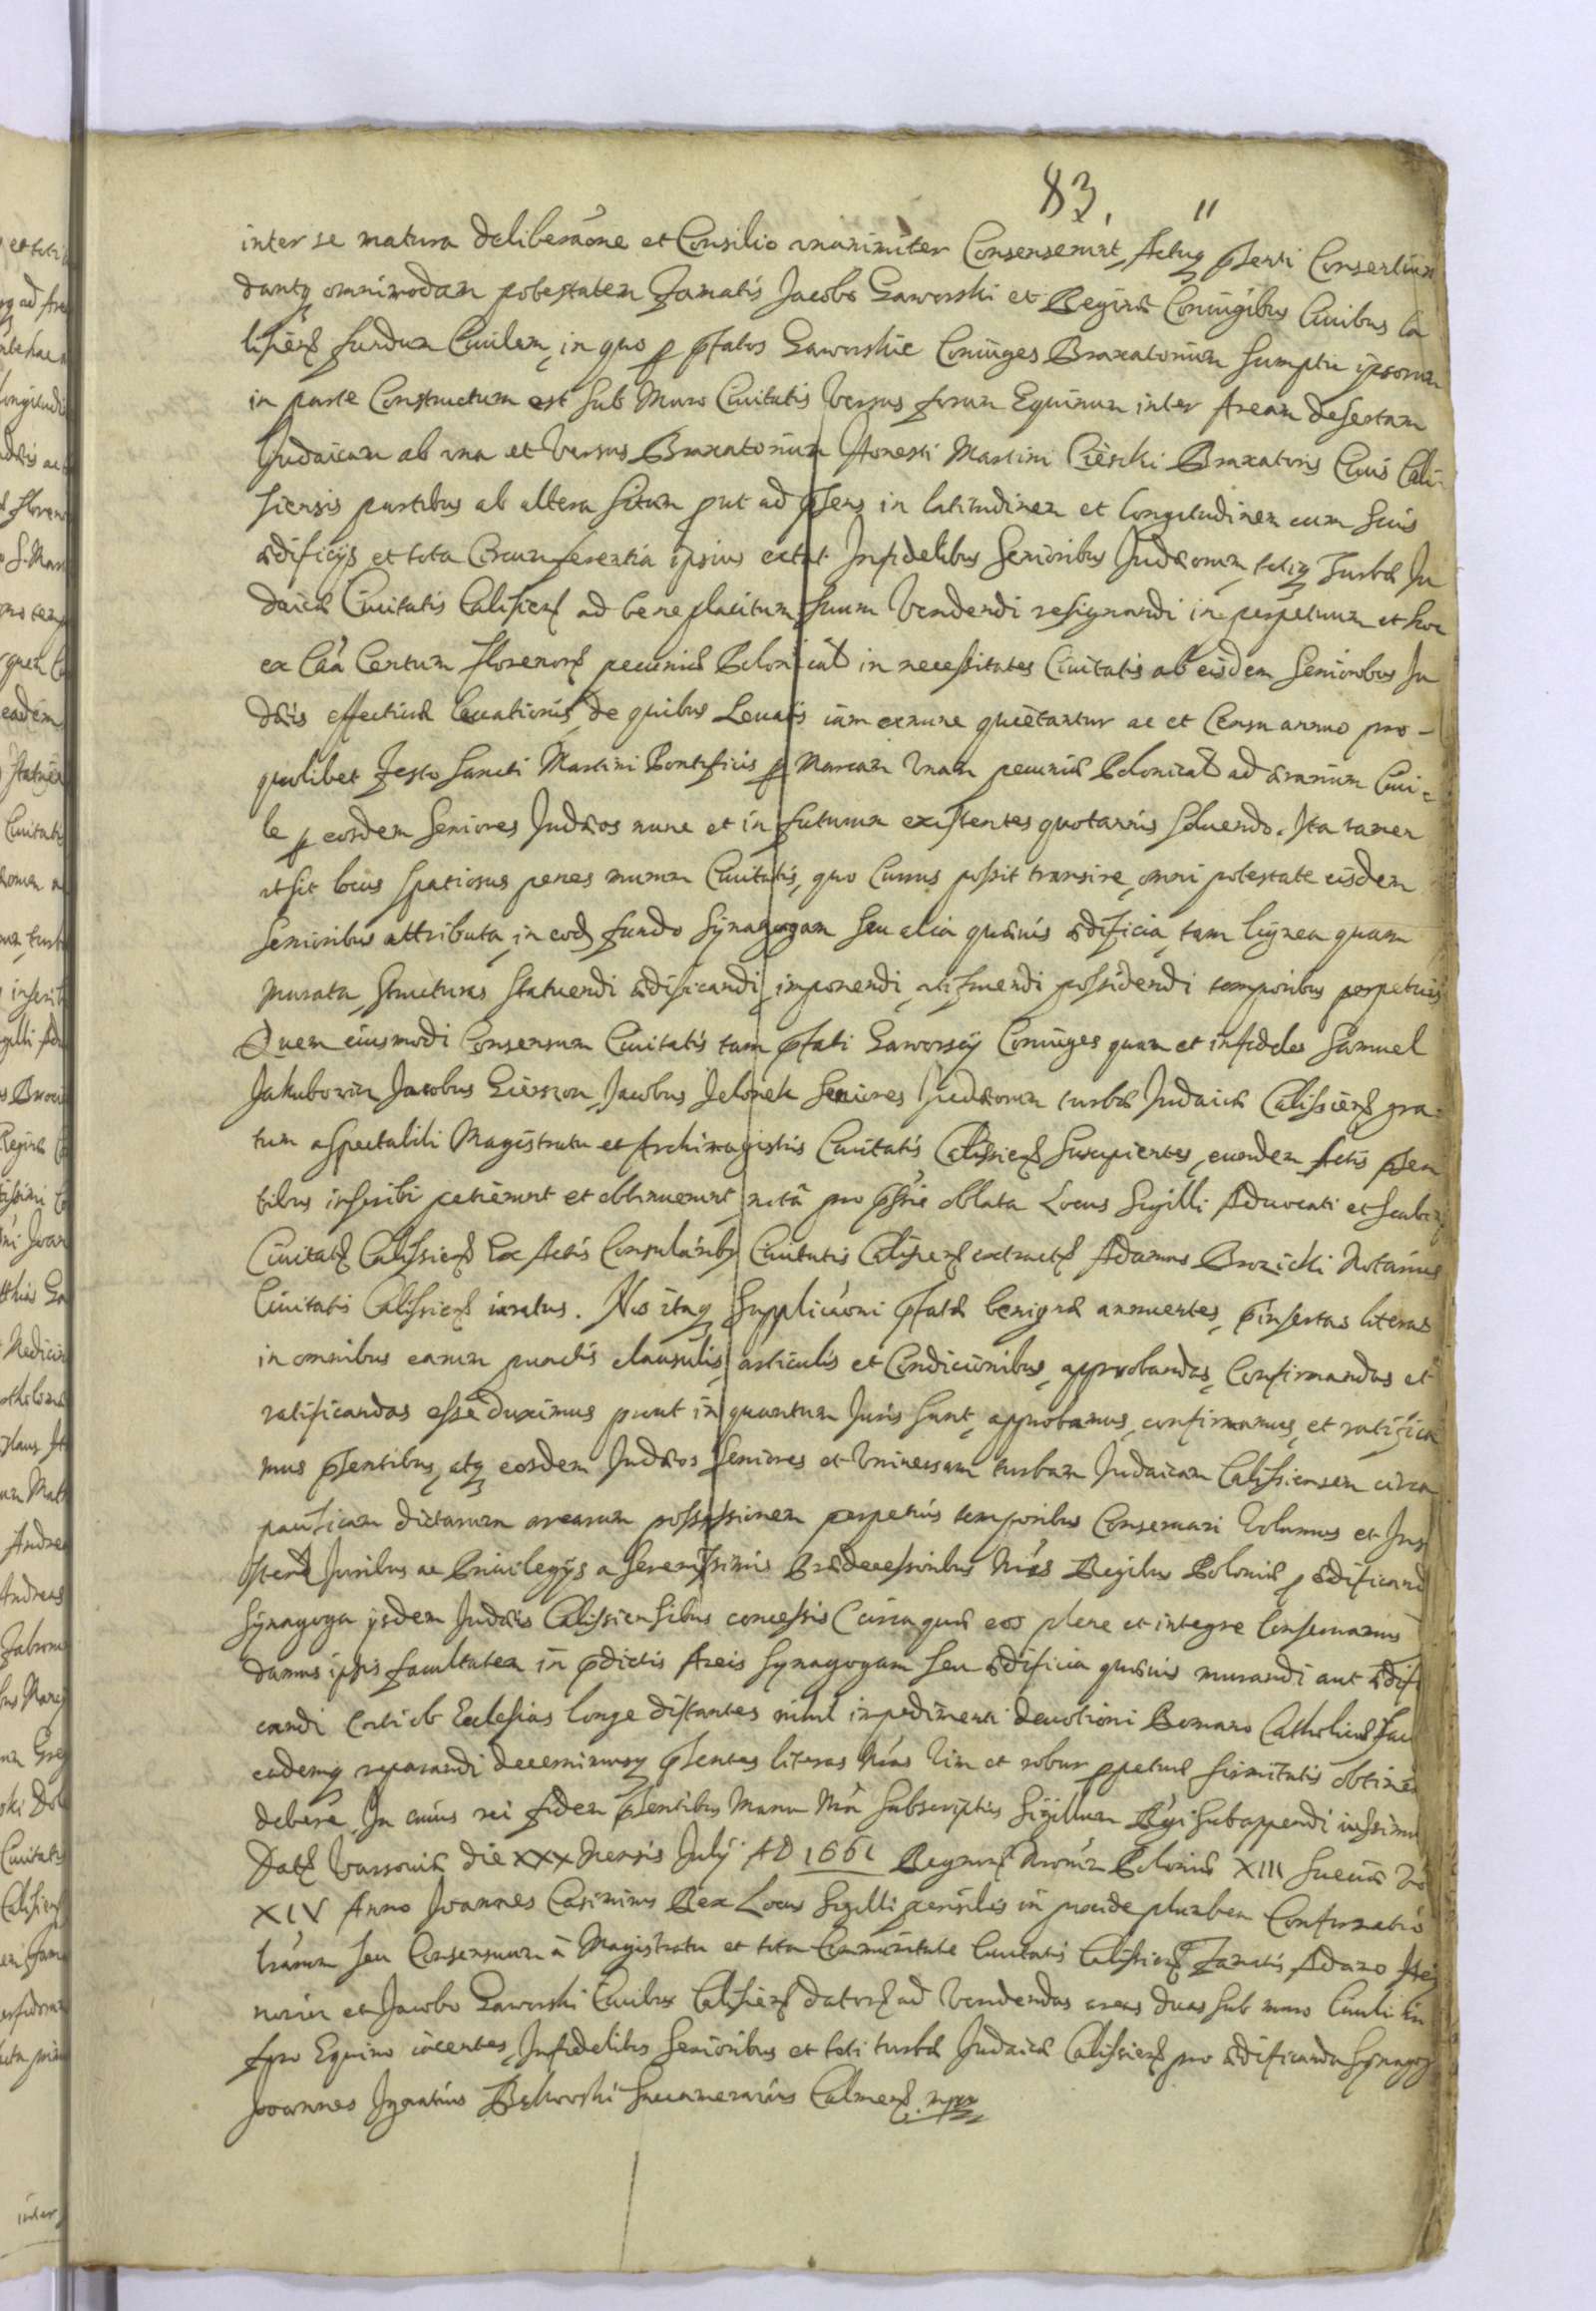 83. "
inter se matura deliberaōne et Consilio unanimiter Consenserunt, Actuq pnti Consertiun
dantq omnimodam potestatem Famatis Jacobo Gaworski et Reginæ Coniugibus Ciuibus Ca
lisien fundum Ciuilem, in quo p pfatos Gaworskie Coniuges Braxatorium sumptu ipsorum
in parte Constructum est sub Muro Ciuitatis Versus forum Equinum inter Aream desertam
Judaicam ab una et Versus Braxatorium Honesti Martini Cieski Braxatoris Ciuis Cali-
siensis partibus ab altera situm put ad pns in latitudinem et longitudinem cum suis
ædificijs et tota Circumferentia ipsius extat Infidelibus Senioribus Judæorum, totiq Turbæ Ju
daicæ Ciuitatis Calisien ad beneplacitum suum Vendendi resignandi in perpetuum et hoc
ex Cāā Centum florenor pecuniæ Polonicæ in necessitates Ciuitatis ab eisdem Senioribus Ju
dæis effectiuæ leuationis, de quibus Leuatis iam exnunc quietantur ac et Censu annuo pro -
quolibet Festo Sancti Martini Pontificis p Marcam Vnam pecuniæ Polonicæ ad ærarium Ciui-
le p eosdem Seniores Judæos nunc et in futurum existentes quotannis soluendo. Ita tamen
ut sit locus spatiosus penes murum Ciuitatis, quo Currus possit transire, omni potestate eisdem
Senioribus attributa, in eod fundo Synagogam seu alia quæuis ædificia, tam lignea quam
murata, structuras statuendi ædificandi, imponendi, utifruendi possidendi temporibus perpetuis
Quem eiusmodi Consensum Ciuitatis tam pfati Gaworscy Coniuges quam et infideles Samuel
Jakubowin Jacobus Gierszon, Jacobus Jelonek Seniores Judæorum turbæ Judaicæ Calissien gra-
tum a Spectabili Magistratu et Archimagistris Ciuitatis Calissien Suscipientes, eundem Actis psen
tibus inscribi petierunt et obtinuerunt notā pro pssie oblata Locus Sigilli Aduocati et Scabin
Ciuitat Calissien Ex Actis Consularib Ciuitatis Calisien extract Adamus Brozicki Notarius
Ciuitatis Calissien iuratus. Nos itaq Supplicaōni pfatæ benigne annuentes, pinsertas literas
in omnibus earum punctis clausulis, articulis et Condicionibus, approbandas, Confirmandas et
ratificandas esse duximus prout in quantum Juris sunt, approbamus, confirmamus, et ratifica
mus psentibus, atq eosdem Judæos Seniores et Vniuersam turbam Judaicam Calissiensem circa
pacificam dictarum arearum possessionem perpetuis temporibus Conseruari Volumus et Ins
Juribus ac Priuilegijs a Serenissimis Prædecessoribus Nris Regibus Poloniæ p ædificand
Synagoga ijsdem Judæis Calissiensibus concessis (circa quæ eos plene et integre Conseruamus
damus ipsis facultatem in pdictis Areis Synagogam seu ædificia quæuis murandi aut ædifi
candi Ecclesias longe distantes nihil impedimenti deuotioni Romano Catholicæ
eademq reparandi decernimusq psentes literas nras Vim et robur ppetuæ firmitatis obtine
debere. In cuius rei fidem psentibus Manu Nrā subscriptis Sigillum Rgi subappendi iussimu
Dat Varsouiæ die XXX Mensis July AD 1661 Regnor Nrorum Poloniæ XIII Sueciæ
XIV Anno Joannes Casimirus Rex Locus Sigilli pensilis in pixide plumbea Confirmatio
lrarum seu Consensuum a Magistratu et tota Communitate Ciuitatis Calissien Famatis Adamo
et Jacobo Gaworski Ciuibus Calisien dator ad Vendendas areas duas sub muro Ciuili in
foro Equino iacentes, Infidelibus Senioribus et toti turbæ Judaicæ Calissien pro ædificanda Synagog
Joannes Ignatius Bąkowski Succamerarius Culmen mpp